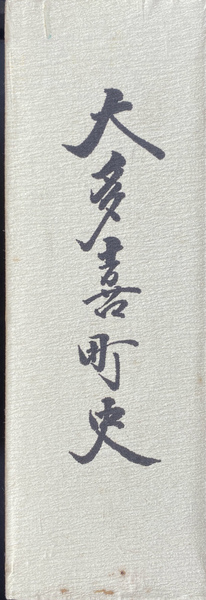 大多喜町史